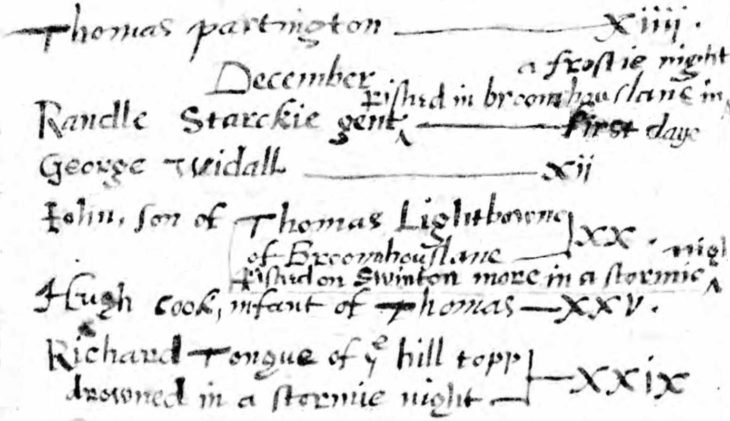 Thomas partington — xiiij.
December
a frostie night
Pished in broomhouslane in
Randle Starckie gent^ — first daye
George Widall — xij
Iohn, son of Thomas Lightbowne
of Broomhouslane — xx.
Pished on Swinton more in a stormie ^ nigh
Hugh Cook, infant of Thomas — xxv.
Richard Tongue of yͤ hill topp
drowned in a stormie night — xxix